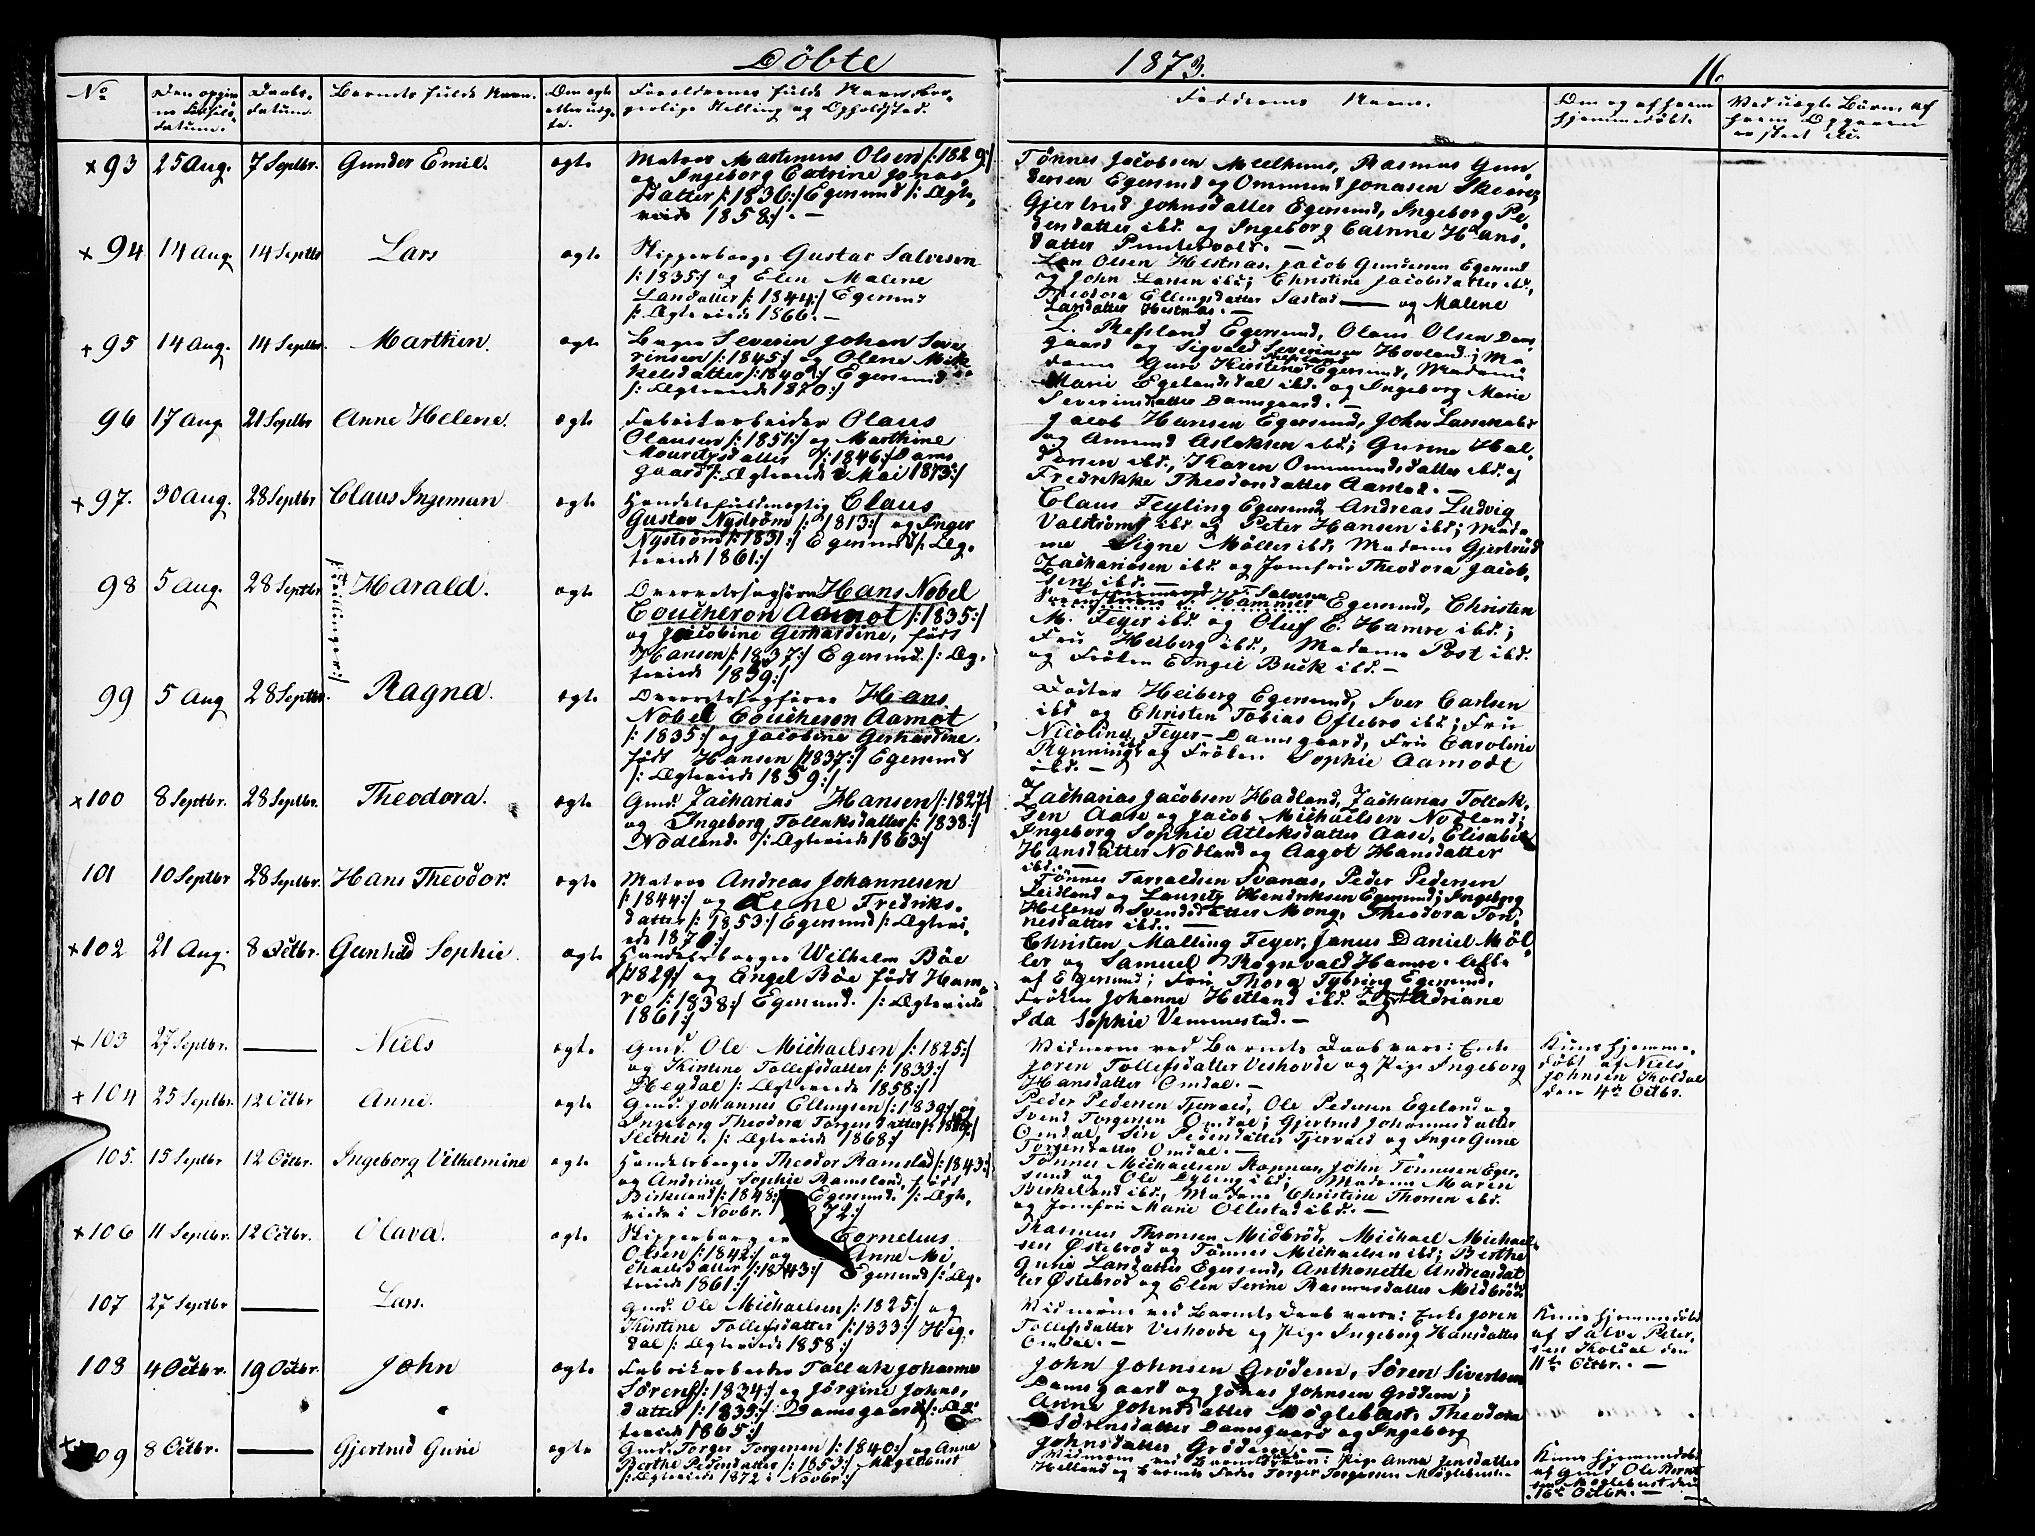 Döbte
1873.
16
No
Barnets fulde Navn.
Faddernes Navn.
x 93 25 Aug. 7 Septbr. Gunder Emil. ægte
Matros Martenius Olsen /: 1829 :/
og Ingeborg Catrine Jonas
Datter /: 1836 :/ Egersund /: Ægte
viede 1858 :/. —
Tønnes Jacobsen Meelhuus, Rasmus Gun-
dersen Egersund og Ommund Jonasen
Gjertrud Johnsdatter Egersund, Ingeborg Pe-
dersdatter ibd. og Ingeborg Catrine Hans-
datter Puntervold. —
x 94 14 Aug. 14 Septbr Lars ægte
Skipperborger Gustav Salvesen
/: 1835 :/ og Elen Malene
Larsdatter /: 1844 :/ Egersund
/: Ægteviede 1866. —
Lars Olsen Hestnæs, Jacob Gundersen Egersund
og John Larsen ibd; Christine Jacobsdatter ibd,
Theodora Ellingsdatter — og Malene
Larsdatter Hestnæs. —
+ 95 14 Aug. 14 Septbr. Marthin. ægte
Severin Johan Seve
rinsen /: 1845 :/ og Olene Mik
kelsdatter /: 1840 :/ Egersund
/: Ægteviede 1870 :/
L. Refsland Egersund, Olaus Olsen Dams
gaard og Sigvald Severinsen Hovland; Ma
dame Guri Kirstine Egersund, Madame
Marie Egelandsdal ibd. og Ingeborg Marie
Severinsdatter Damsgaard. —
96 17 Aug. 21 Septbr Anne Helene. ægte
Fabrikarbeider Olaus
Olausen /: 1851 :/ og Marthine
Mouritzdatter /: 1846 :/ Dams
gaard /: Ægteviede Mai 1873 :/
Jacob Hansen Egersund, John Larsen ibd
og Amund Aslaksen ibd; Gunne Hal-
ibd., Karen Ommundsdatter ibd. og
Fredrikke Theodorsdatter Aarstad. —
+ 97. 30 Aug. 28 Septbr Claus Ingeman ægte
Handelsfuldmægtig Claus
Gustav Nystrøm /: 1813 :/ og Inger
Nystrøm /: 1831 :/ Egersund /: Æg-
teviede 1861 :/
Claus Feyling Egersund, Andreas Ludvig
Valstrøm ibd. og Peter Hansen ibd; Mada-
me Signe Møller ibd, Madame Gjertrud
Zachariasen ibd. og Jomfru Theodora Jacob-
sen ibd. —
98 5 Aug. 28 Septbr Harald. ægte
/: Tvillinger :/
Overretssagfører Hans Nobel
Coucheron Aamot /: 1835 :/
og Jacobine Gerhardine, født
Hansen /: 1837 :/ Egersund. /: Æg-
teviede 1859 :/
Hammer Egersund, Christen
M. Feyer ibd. og Oluf E. Hamre ibd.;
Fru Heiberg ibd., Madame Post ibd.
og Frøken Engel Buck ibd. —
99 5 Aug 28 Septbr. Ragna. ægte
Overretssagfører Hans
Nobel Coucheron Aamot
/: 1835 :/ og Jacobine Gerhardine,
født Hansen /: 1837 :/ Egersund
/: Ægteviede 1859 :/
Doctor Heiberg Egersund, Iver Carlsen
ibd og Christen Tobias Oftebro ibd; Fru
Nicoline Feyer - Damsgaard, Fru Caroline
Rynning ibd og Frøken Sophie Aamodt
ibd. —
x 100 8 Septbr. 28 Septbr. Theodora. ægte
Gmd. Zacharias Hansen /: 1827 :/
og Ingeborg Tollaksdatter /: 1838 :/
Nodland. /: Ægteviede 1863 :/
Zacharias Jacobsen Hadland, Zacharias Tollak-
sen Aase og Jacob Michaelsen Nodland;
Ingeborg Sophie Atlaksdatter Aase, Elisabet
Hansdatter Nodland og Aagot Hansdatter
ibd. —
101 10 Septbr 28 Septbr. Hans Theodor. ægte
Matros Andreas Johannesen
/: 1844 :/ og Lene Fredriks-
datter /: 1853 :/ Egersund /: Ægtevi-
ede 1870 :/
Tønnes Torvaldsen Svanæs, Peder Pedersen
Leidland og Lauritz Hendriksen Egersund; Ingeborg
Helene Svendsdatter Mong, Theodora Tøn-
nesdatter ibd. —
x 102 21 Aug. 8 Octbr. Gunhild Sophie. ægte
Handelsborger Wilhelm Bøe
/: 1829 :/ og Engel Bøe født Ham-
re /: 1838 :/ Egersund. /: Ægteviede
1861 :/
Christen Malling Feyer, Janus Daniel Møl-
ler og Samuel Rognvald Hamre. Alle
af Egersund; Fru Thora Tybring Egersund,
Frøken Johanne Hetland ibd. og Adriane
Ida Sophie Vemmestad. —
+ 103 27 Septbr. — Niels ægte
Gmd. Ole Michaelsen /: 1825 :/
og Kirstine Tollefsdatter /: 1833 :/
Hegdal /: Ægteviede 1858 :/
Vidnerne ved Barnets Daab vare: Enke
Joren Tollefsdatter Veshovde og Pige Ingeborg
Hansdatter Omdal. —
Kuns hjemme-
døbt af Niels
Johnsen Koldal
den 4de Octbr.
+ 104 25 Septbr. 12 Octbr Anne. ægte
Gmd. Johannes Ellingsen /: 1839 :/ og
Ingeborg Theodora Torgersdatter
Slethei. /: Ægteviede 1868 :/
Peder Pedersen Tjervald, Ole Pedersen Egeland og
Svend Torgersen Omdal; Gjertrud Johannesdatter
Omdal, Siri Pedersdatter Tjervald og Inger Gurie
Torgersdatter Omdal. —
105. 15 Septbr 12 Octbr. Ingeborg Vilhelmine ægte
Handelsborger Theodor Ramsland /: 1843 :/
og Andrine Sophie Ramsland, født
Birkeland /: 1848 :/ Egersund. /: Ægte-
viede i Novbr. 1872 :/
Tønnes Michaelsen Hopnæs, John Tønnesen Eger-
sund og Ole Nyberg ibd; Madame Maren
Birkeland ibd., Madame Christine Thorsen ibd.
og Jomfru Marie Ollestad ibd. —
x 106 11 Septbr. 12 Octbr. Olava. ægte
Skipperborger Cornelius
Olsen /: 1842 :/ og Anne Mi-
chaelsdatter /: 1843 :/ Egersund /: Æg-
teviede 1861 :/
Rasmus Thronsen Midbrød, Michael Michael-
sen Østebrød og Tønnes Michaelsen ibd; Berthe
Gurie Larsdatter Egersund, Anthonette Andreasdat
ter Østebrød og Elen Serine Rasmusdatter Midbrød
107 27 Septbr — Lars. ægte
Gmd. Ole Michaelsen /: 1825 :/ og
Kirstine Tollefsdatter /: 1833 :/ Heg-
dal /: Ægteviede 1858 :/
Vidnerne ved Barnets Daab vare: Enke Joren
Tollefsdatter Veshovde og Pige Ingeborg Hansdatter
Omdal. —
Kuns hjemmedøbt
af Salve Peter-
sen Koldal den
11te Octbr. —
108 4 Octbr. 19 Octbr. John ægte
Fabrikarbeider Tallak Johannes
Sørens /: 1834 :/ og Jørgine Johns-
datter /: 1839 :/ Damsgaard /: Æg-
teviede 1865 :/
John Johnsen Grødem, Søren Sivertsen
Damsgaard og Jonas Johnsen Grødem;
Anne Johnsdatter Møglebust, Theodora
Sørensdatter Damsgaard og Ingeborg
Johnsdatter Grødem. —
109 8 Octbr. — Gjertrud Gurie ægte
Gmd. Torger Torgersen /: 1840 :/ og Anne
Berthe Pedersdatter /: 1853 :/ Møglebust
/: Ægteviede 1872 i Novbr :/
Vidnerne ved Barnedaaben: Pige Anna Jensdatter
Helland og Barnets Fader Torger Torgersen Møglebust. —
Kuns hjemmedøbt
af Gmd Ole Bernt
sen Møglebust den
16de Octbr. —